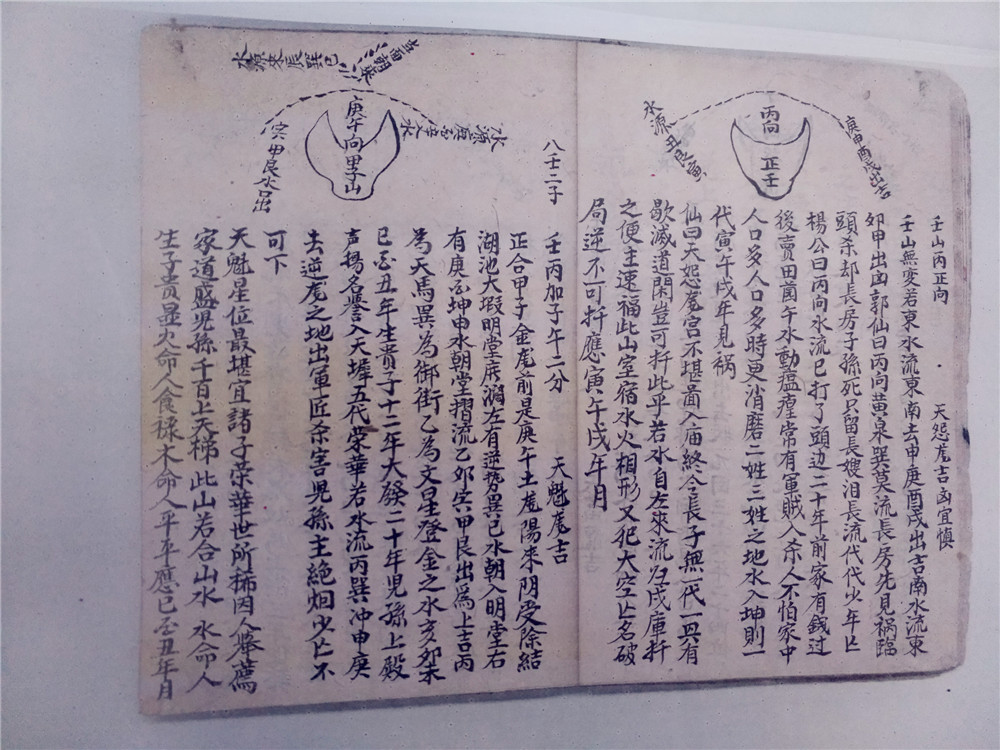 壬山丙正向　天怨龙吉凶宜慎
壬山無变若東水流東南去申庚酉戌出吉南水流東
卯甲出凶郭仙曰丙向黄泉巽莫流長房先見禍臨
頭杀却長房子孫死只留長嫂泪長流代代少年亡
楊公曰丙向水流巳打了頭边二十年前家有錢过
後賣田茵午水動瘟瘽常有軍賊入杀人不怕家中
人口多人口多時更消磨二姓三姓之地水入坤則一
代寅午戌年見祸
仙曰天怨龙宫不堪啚入庙終令長子無一代一興有
歇滅道閑豈可扦此乎若水自左來流為戌庫扦
之便主速福此山室宿水火相形又犯大空亡名破
局逆不可扦應寅午戌年月
丙向
正壬
水源丑艮寅
庚申酉戌出吉
八壬二子
壬丙加子午二分　天魁龙吉
正合甲子金龙前是庚午土龙陽来阴受除結
湖池大嘏明堂床濶左有逆势巽巳水朝入明堂右
有庚酉坤申水朝堂摺流乙卯寅甲艮出為上吉丙
為天馬巽為御街乙為文星登金之水亥卯未
巳酉丑年生貴子十二年大發二十年児孫上殿
声揚名譽入天墀五代荣華若水流丙巽冲申庚
去逆龙之地出軍匠杀害児孫主絶烟少亡不
可下
天魁星位最堪宜諸子荣華世所稀因人舉薦
家道盛児孫千百上天梯此山若合山水水命人
生子貴显火命人食禄木命人平平應巳酉丑年月
庚午向甲子山
水源来辰巽巳
当面朝来
水源庚酉辛水
寅甲艮水出